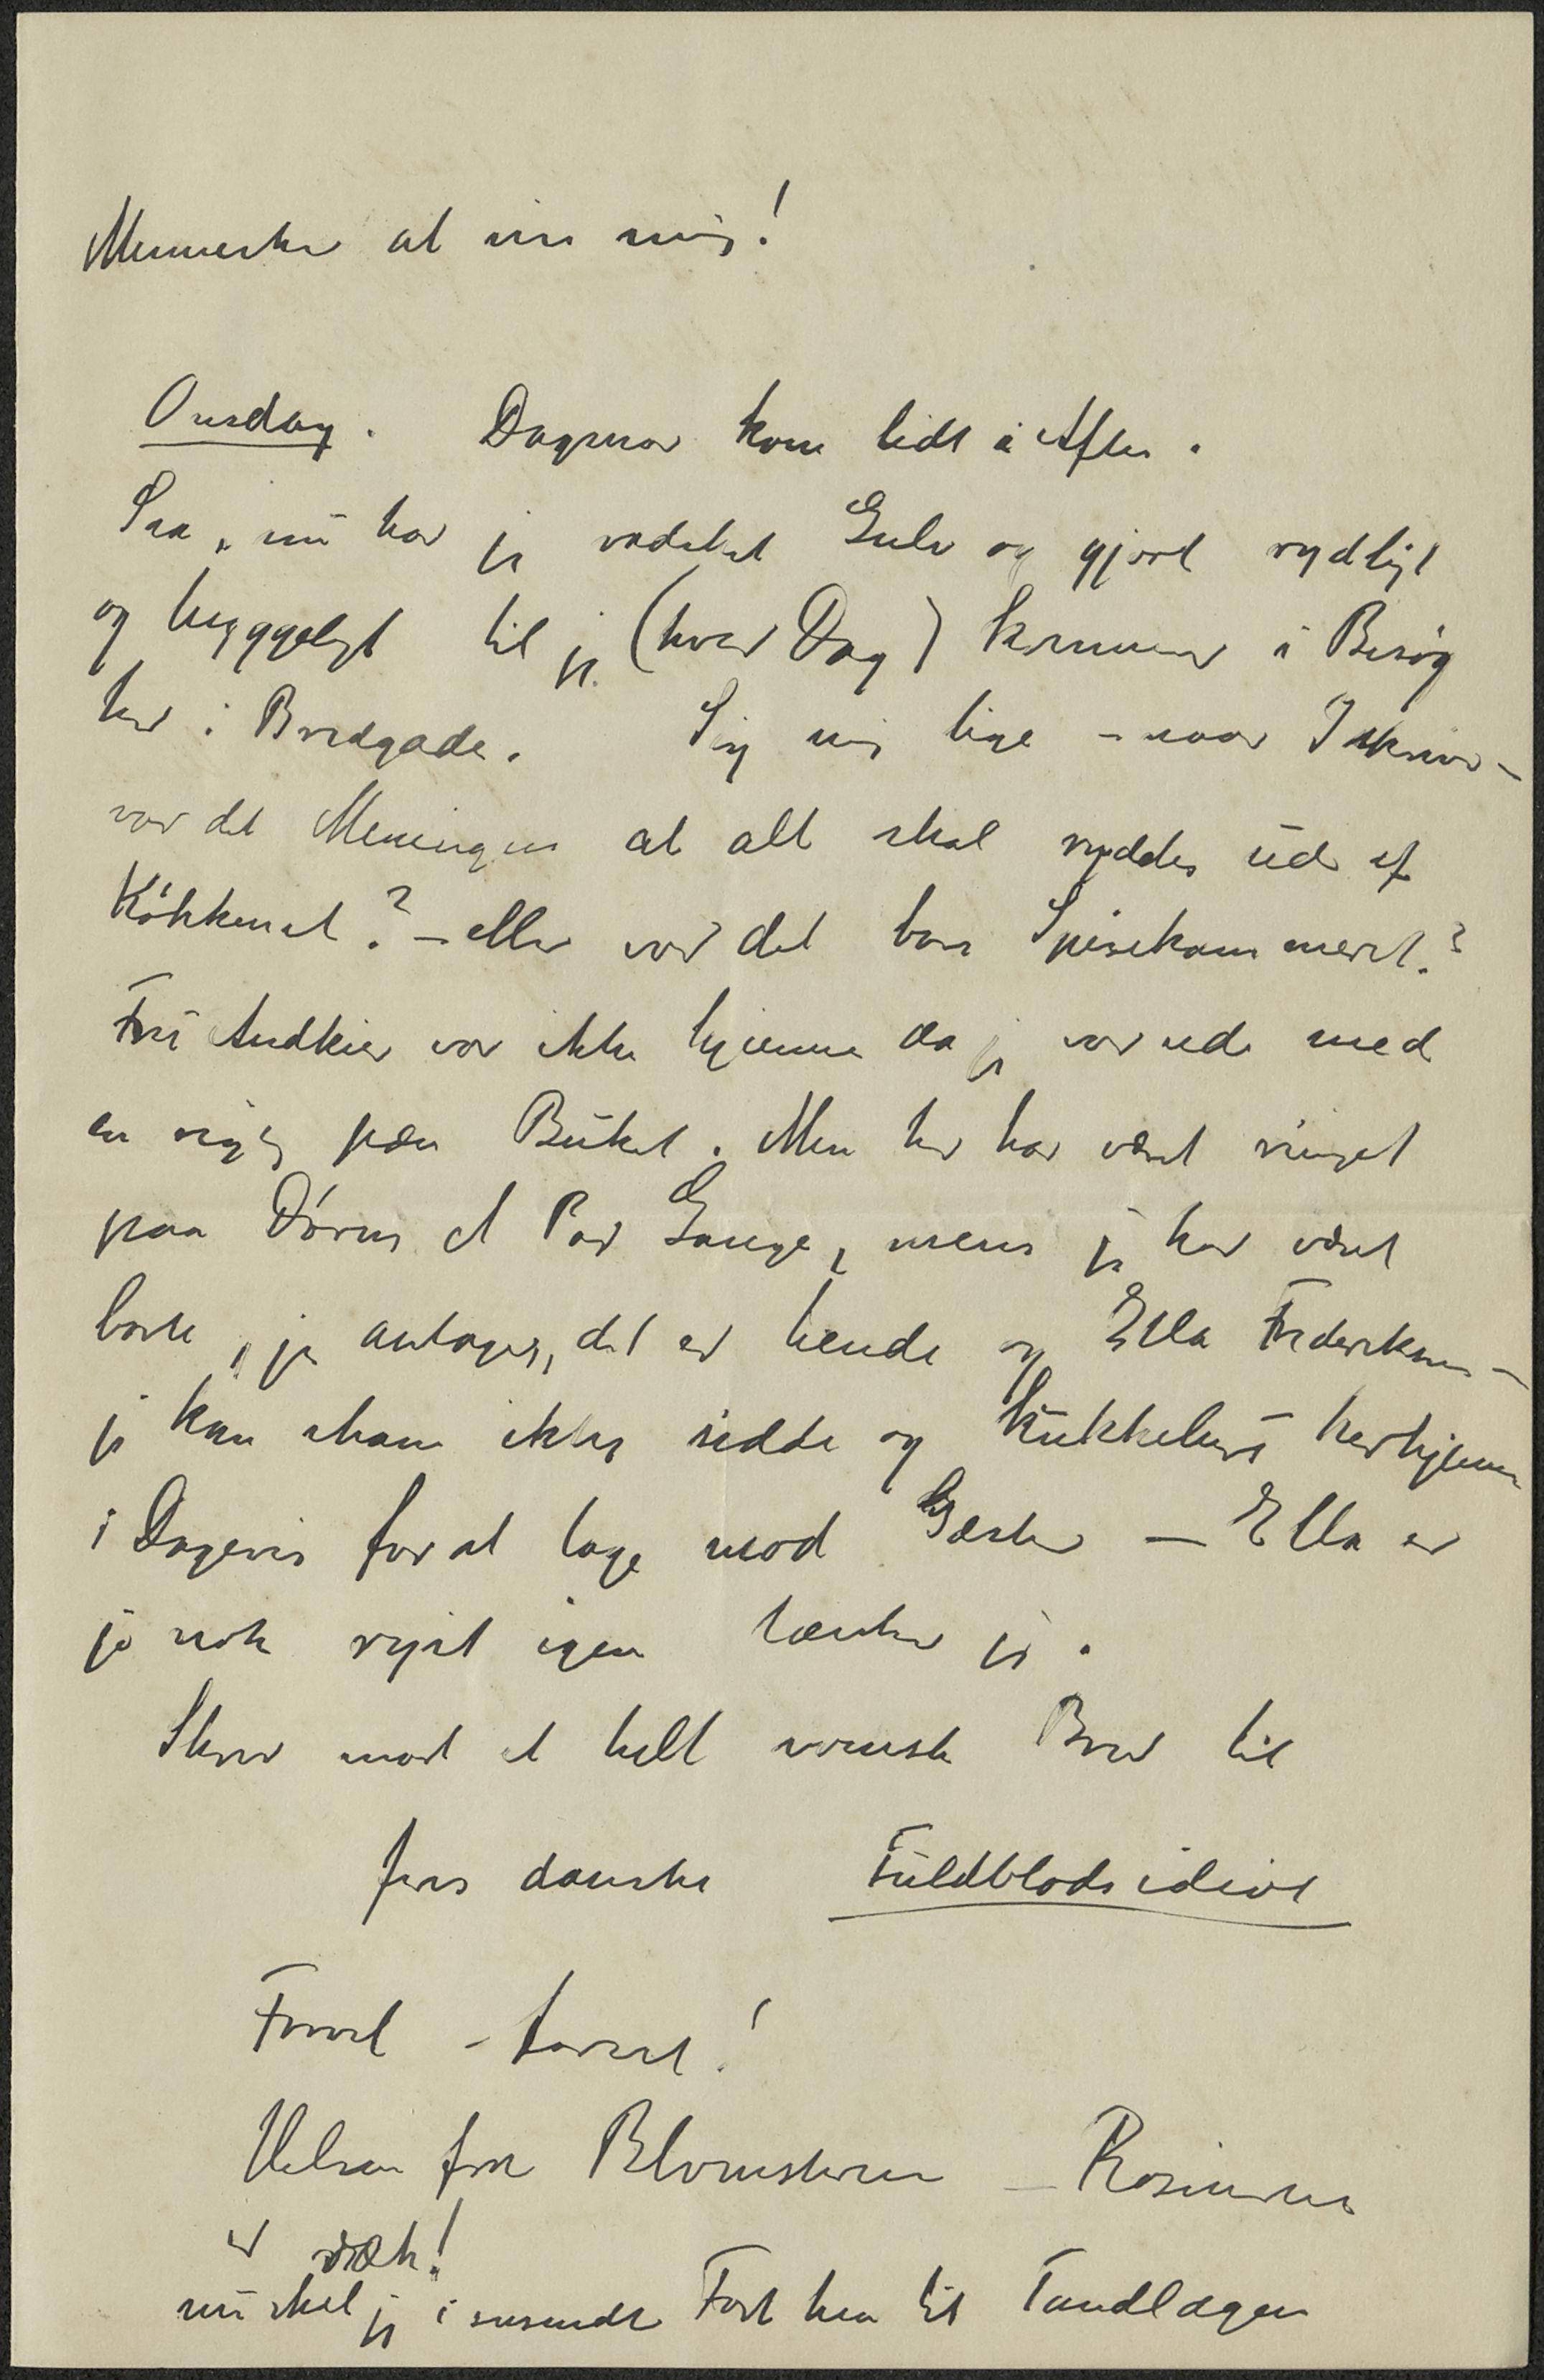 Mennesker at se mig!
Onsdag. Dagmar kom lidt i Aften.
Saa, nu har jeg vadsket Gulv og gjort rydligt
og hyggeligt til jeg (hver Dag) kommer i Besøg
her i Bredgade. Sig mig lige – naar I skriver –
var det Meningen at alt skal ryddes ud af
Køkkenet? – eller var det bare Spisekammeret?
Fru Andkier var ikke hjemme da jeg var ude med
en rigtig pæn Buket. Men her har været ringet
paa Døren et Par Gange, mens jeg har været
borte, jeg antager, det er hende og Ella Frederiksen –
jeg kan skam ikke sidde og kukkelure herhjemme
i Dagevis for at tage mod Gæster – Ella er
jo nok rejst igen tænker jeg.
Skriv snart et helt svensk Brev til
jeres danske Fuldblodsidiot
Farvel – farvel!
Hilsen fra Blomsterne – Rosinerne
er væk!
nu skal jeg i susende Fart hen til Tandlægen